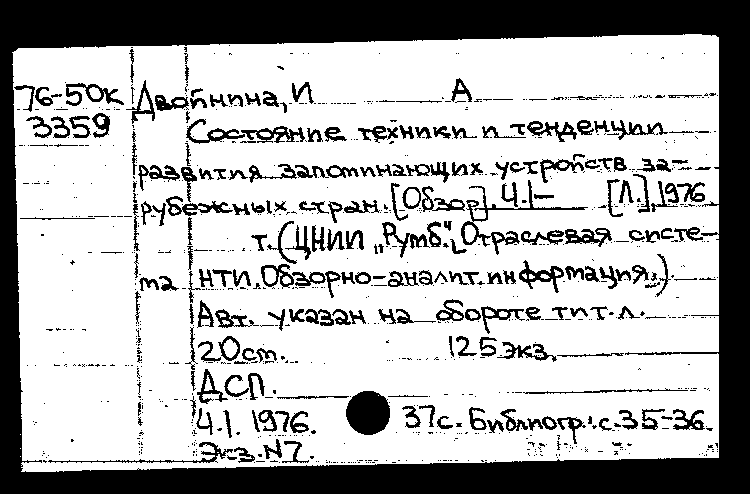 76-50к Двойнина, И А
3359 Состояние техники и тенденции
развития запоминающих устройств за-
рубежных стран. [Обзор]. Ч.1- [Л.], 1976
т. (ЦНИИ „Румб". Отраслевая систе-
ма НТИ. Обзорно-аналит. информация.)
Авт. указан на обороте тит. л.
20 см. 125 экз.
ДСП.
Ч.1. 1976. 37 с. Библиогр.: с. 35-36.
Экз. N7.